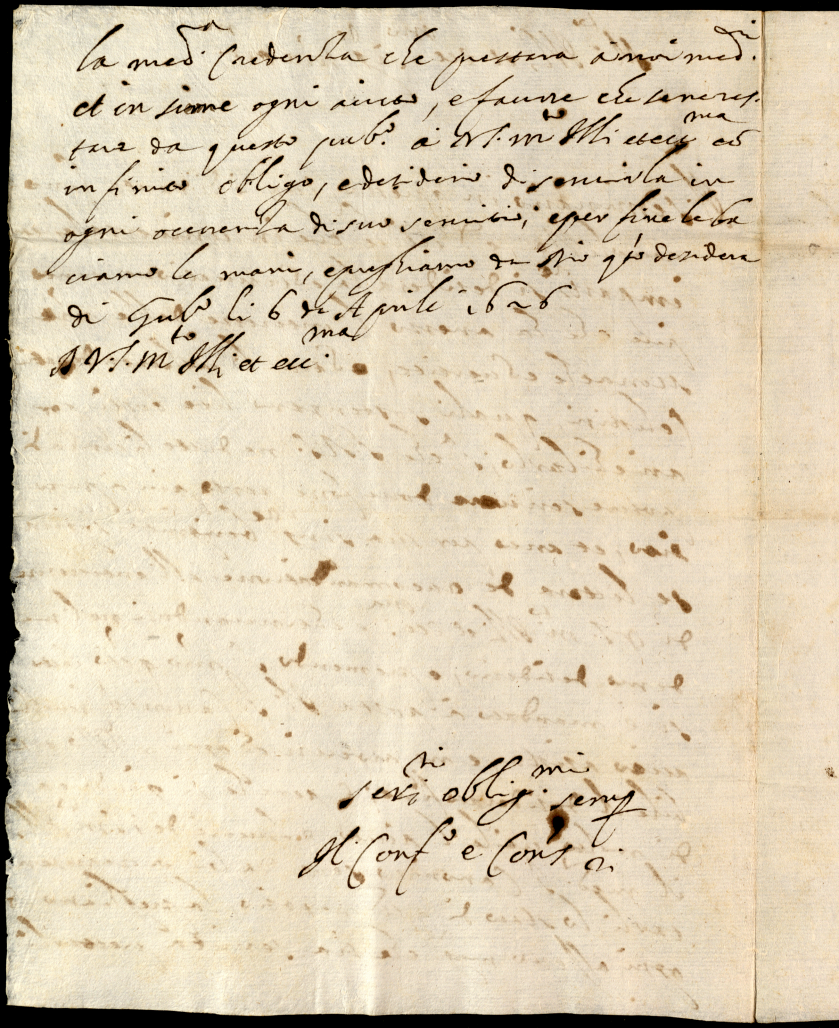 la med.a Credenza che prestara à noi med.mi
et in sieme ogni aiuto, e favore che ne res-
tara da questo pub.o à V.S. m.to Ill: et ecc.ma con
infinito obligo, e desiderio di servirla in
ogni occorenza di suo servitio; e per fine le ba
ciamo le mani, e preghiamo da Dio q.to desidera
di Gub.o li 6 de Aprile 1626
D V.S. m.to Ill: et ecc.ma
Ser.ri oblig.mi semp
Il Conf.e e Cons.ri